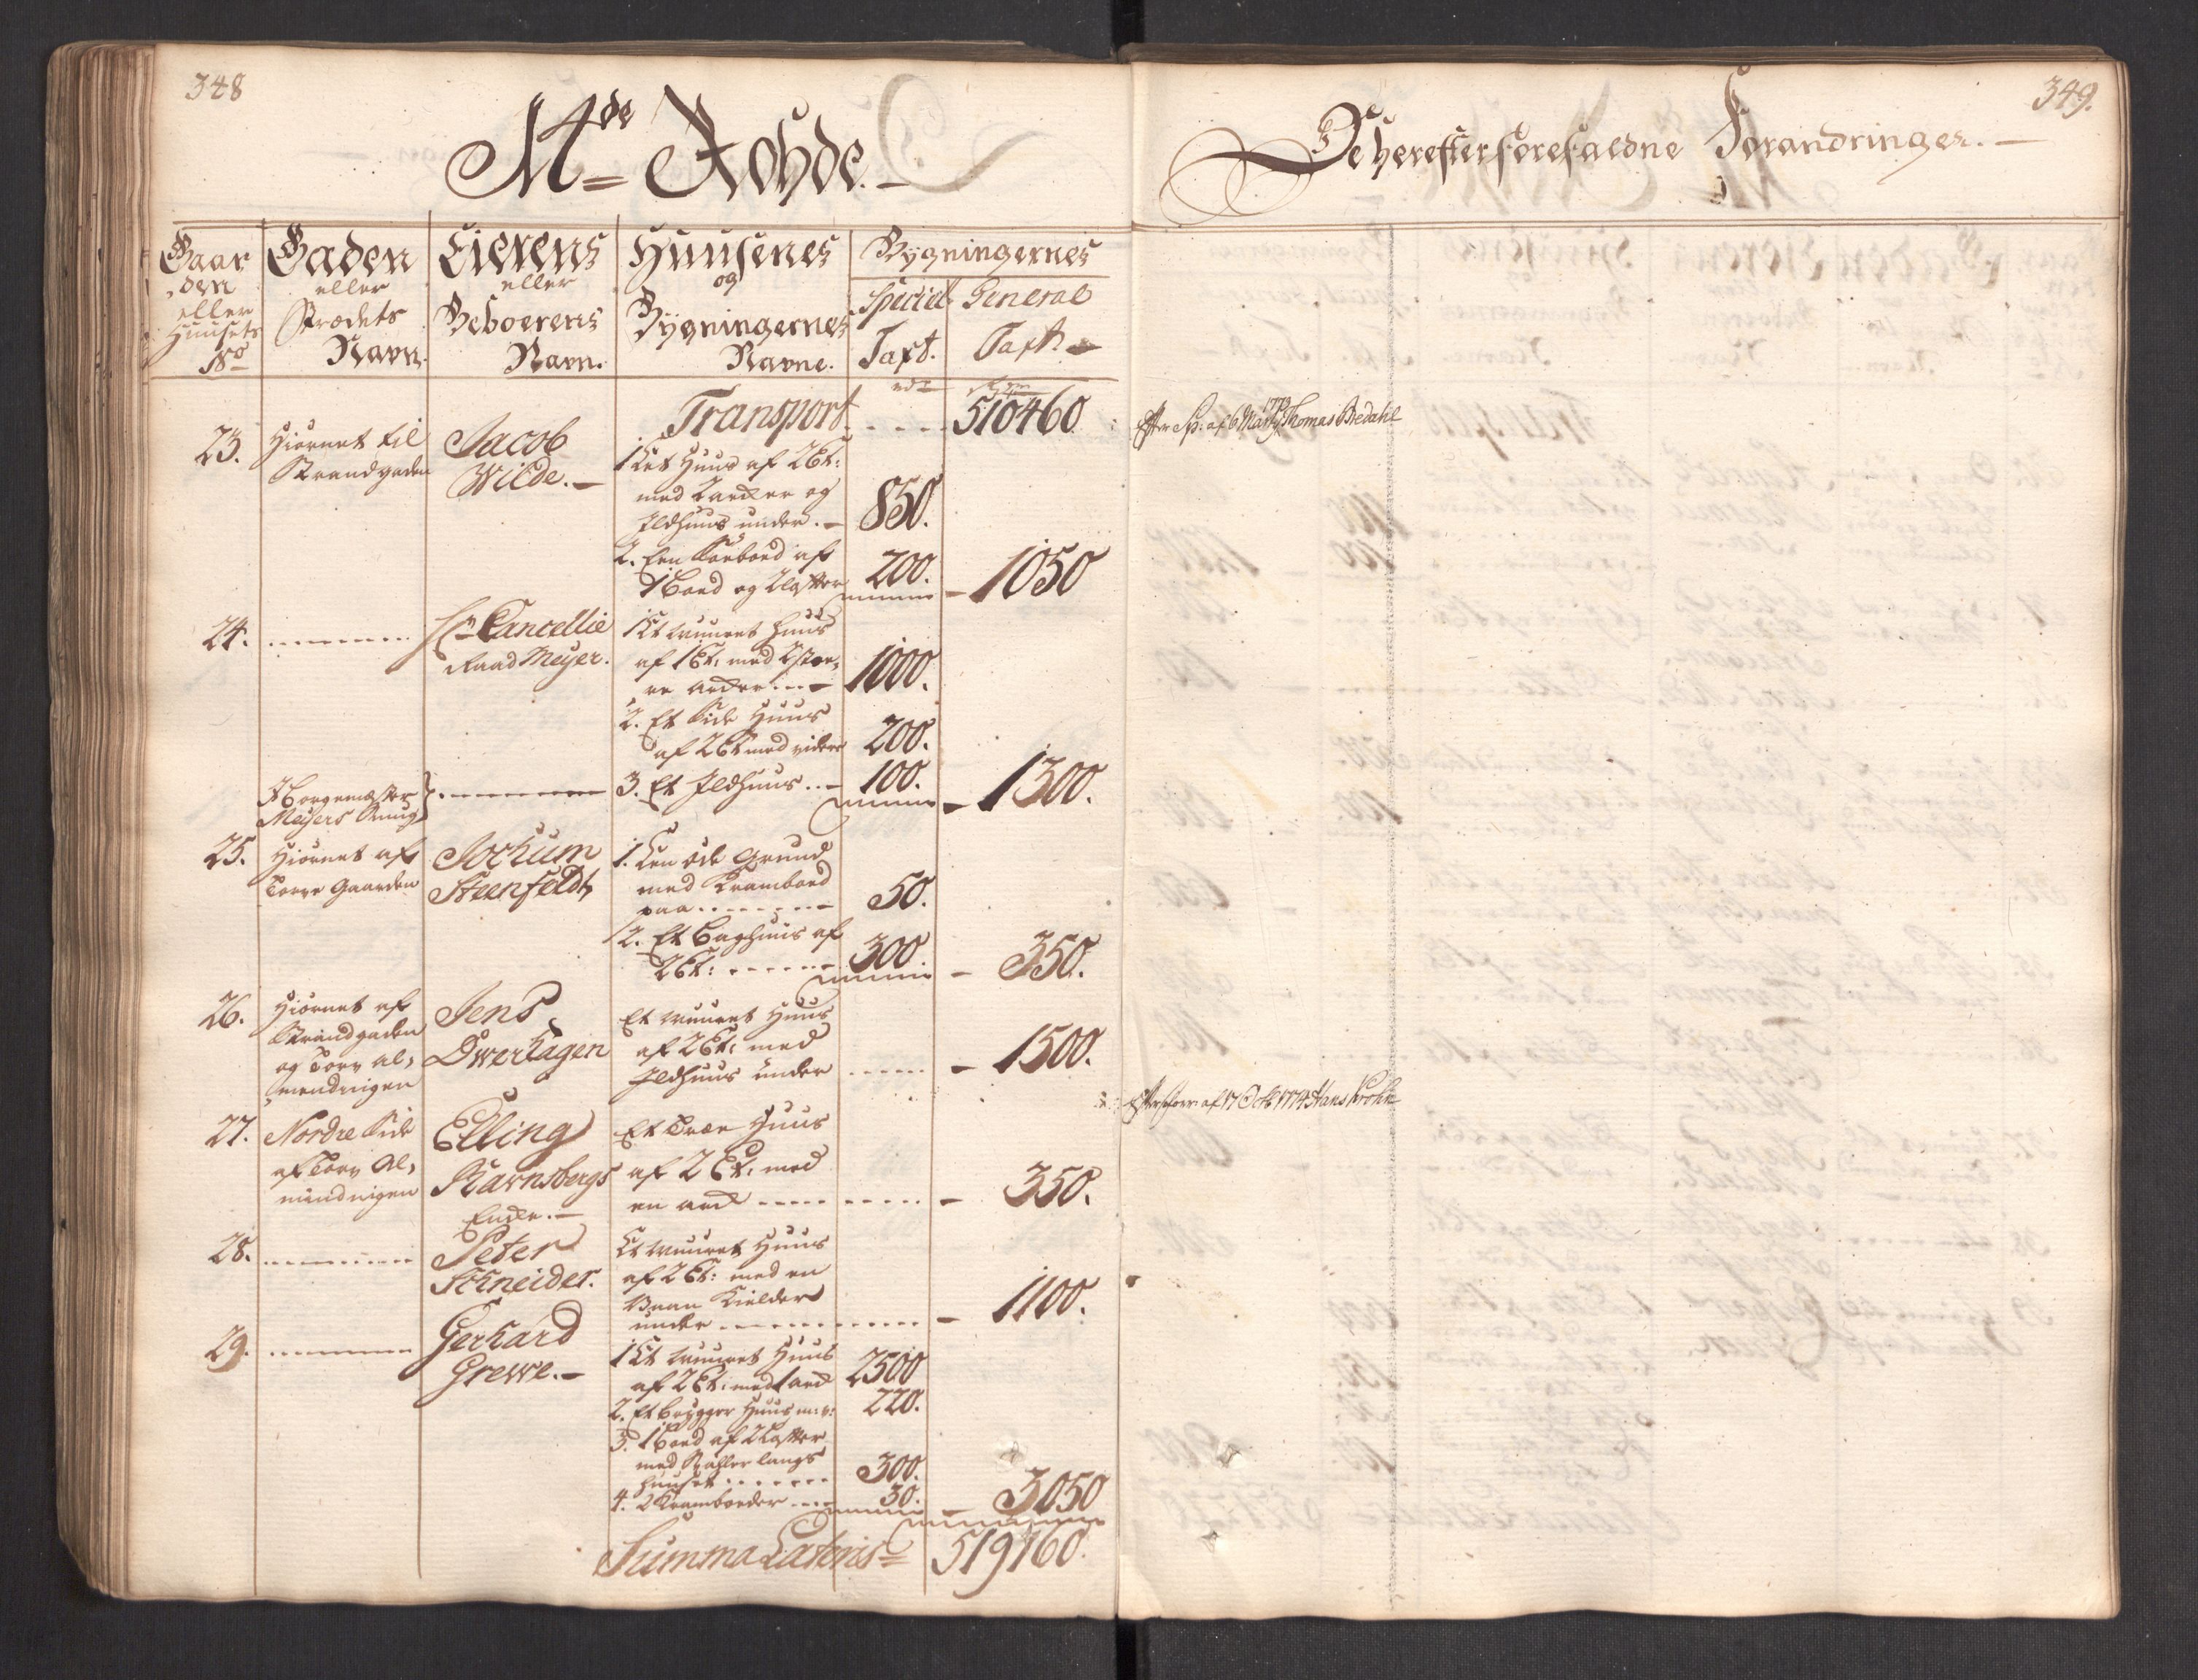 348
M4de Rohde.
Gaar den eller Huusets No
Gaden eller Strædets Navn.
Eierens eller Beboerens Navn.
Huusenes og Bygningernes Navne.
Bygningernes
Speciel Taxt.
General Taxt.
Transport 510460
23. Hiørnet til Jacob 1 Et Huus af 2 Et:
Strandgaden Wilde.
med Karker og
Ildhuus under. 850.
2. Een Søebod af
1 Boed og 2 Lofter 200. 1050
24. Hr. Cancellie 1 Et muuret Huus
Raad Meyer. af 1 Et. med
1000.
2. Et Side Huus
af 2 Et med videre 200.
3. Et Ildhuus 100. 1300.
Borgemester
Meyers
25. Hiørnet af Jochum 1. Een øde Grund
Torve Gaarden Steenfeldt, med Kramboed
paa 50.
2. Et Baghuus af
2 Et: 300. 350.
26. Hiørnet af Jens Et muuret Huus
Strandgaden Overhagen af 2 Et: med
og Torv al- Ildhuus under 1500.
mendingen
27. Nordre Side Elling Et Træe Huus
af Torv Al- Ravnsbergs af 2 Et. med
mendingen Enke. en ark 350.
28. Peter Et muuret Huus
Schneider. af 2 Et: med en
Kielder
under 1100.
29. Gerhard 1 Et muuret Huus
Grewe. af 2 Et. med 1 ark 2500
2. Et Brygger Huus m: v: 220.
3. 1 Boed af 2 Lofter
med langs
Huuset 300.
4. 2 Kramboeder 30. 3050
Summa Lateris 519160.
349.
De herefter forefaldne Forandringer.
Efter Sk: af 6 Martz 1779 Thomas Bredahl
Efter Forr: af 17 Octb 1774 Hans Krohn